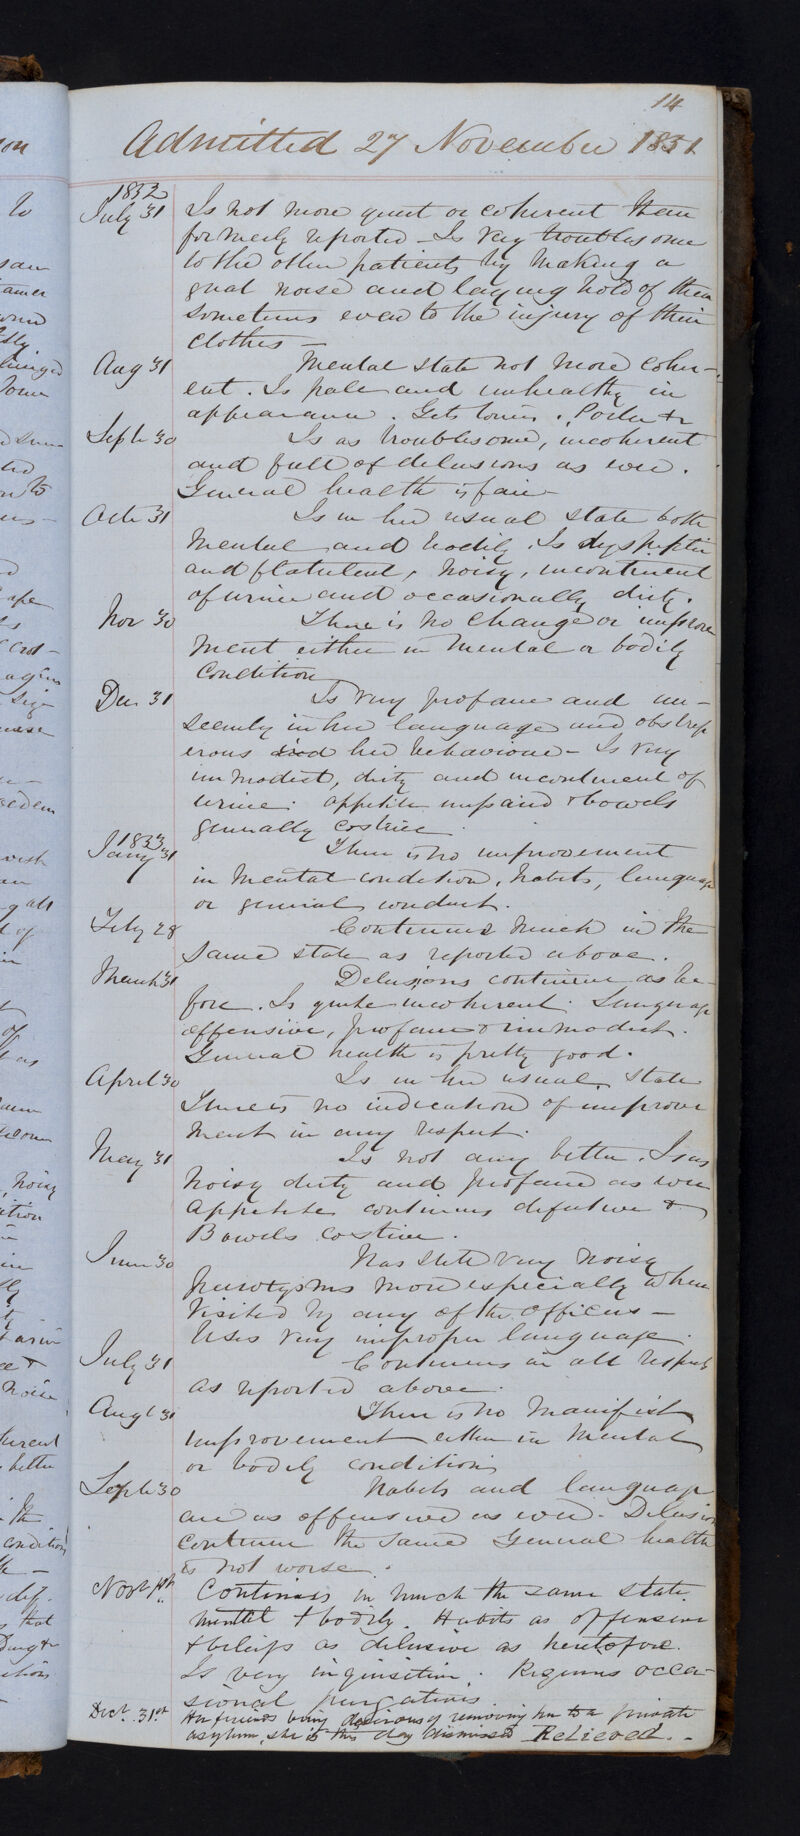 14
Admitted 27 November 1851
1852
July 31 Is not more quiet or coherent than
formerly reported - Is very troublesome
to the other patients by making a
great noise and laying hold of them
sometimes even to the injury of their
clothes -
Aug 31 Mental state not more coher-
ent. Is pale and unhealthy in
appearance. Gets Porter &
Septr 30 Is as troublesome, incoherent
and full of delusions as ever.
General health is fair -
Octr 31 Is in her usual state both
mental and bodily. Is dyspeptic
and flatulent, noisy, incontinent
of urine and occasionally dirty.
Nov 30 There is no change or improve
ment either in mental or bodily
condition
Dec 31 Is very profane and un-
seemly in her language and obstrep
erous her behaviour - Is very
immodest, dirty and incontinent of
urine. appetite impaired & bowels
generally costive.
1853
Jany 31 There is no improvement
in mental condition, habits, language
or general conduct.
Feby 28 Continues much in the
same state as reported above.
March 31 Delusions continue as be-
fore. Is quite incoherent. Language
offensive, profane & immodest.
General health is pretty good.
April 30 Is in her usual state
There is no indication of improve
ment in any respect.
May 31 Is not any better. Is as
noisy dirty and profane as ever
Appetite continues defective &
Bowels costive.
June 30 Has still very noisy
paroxysms more especially when
visited by any of the Officers -
Uses very improper language.
July 31 Continues in all respects
as reported above.
Augt 31 There is no manifest
improvement either in mental
or bodily condition
Septr 30 Habits and language
are as offensive as ever. Delusions
continue the same General health
is not worse.
Novr 1st Continues in much the same state
mental & bodily. Habits as offensive
& beliefs as delusive as heretofore.
Is very inquisitive. Requires occa-
sional purgatives.
Decr. 31st Her friends being desirous of removing her to a private
asylum, she is this day dismissed Relieved. -